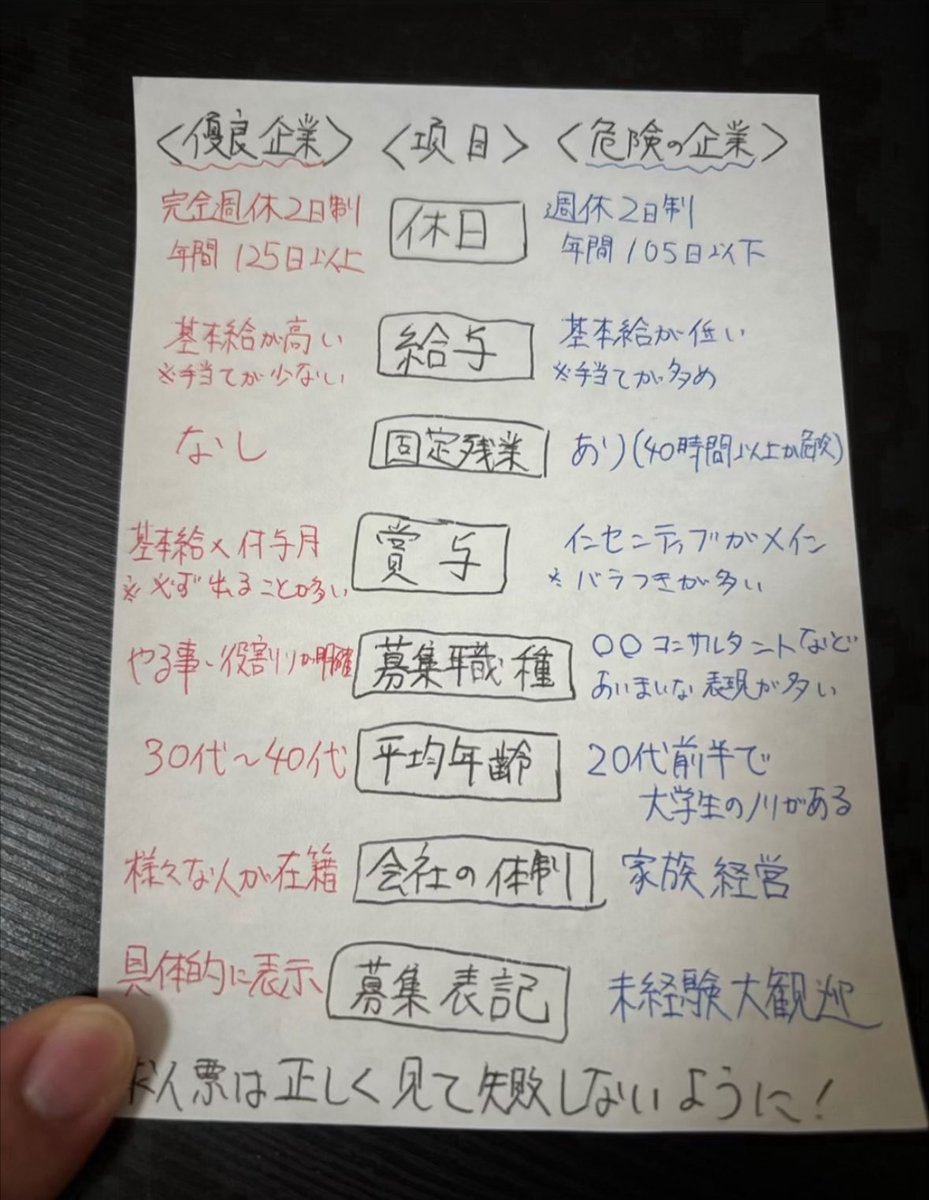 <優良企業> <項目> <危険の企業>
完全週休2日制 休日 週休2日制
年間125日以上 年間105日以下
基本給が高い 給与 基本給が低い
※手当てが少ない ※手当てが多め
なし 固定残業 あり(40時間以上が危険)
基本給×付与月 賞与 インセンティブがメイン
※必ず出ることが多い ※バラつきが多い
やる事、役割りが明確 募集職種 〇〇コンサルタントなど
あいまいな表現が多い
30代~40代 平均年齢 20代前半で
大学生のノリがある
様々な人が在籍 会社の体制 家族経営
具体的に表示 募集表記 未経験大歓迎
求人票は正しく見て失敗しないように!